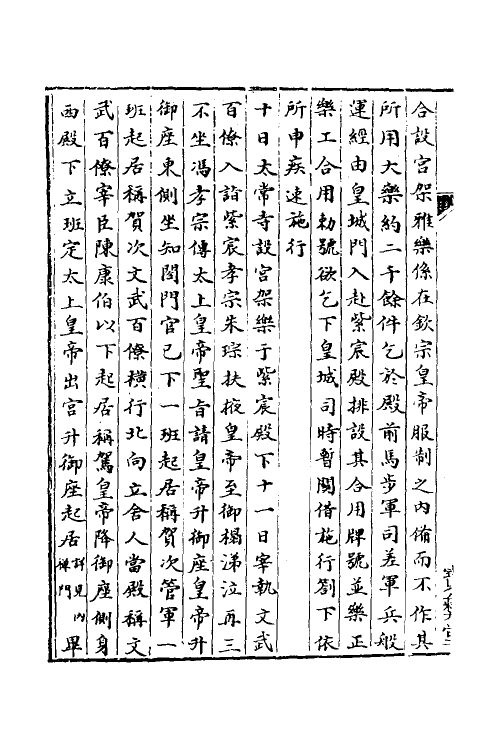 合設宮架雅樂係在欽宗皇帝服制之内備而不作其
所用大樂約二千餘件乞於殿前馬步軍司差軍兵般
運經由皇城門入赴紫宸殿排設其合用牌號並樂正
樂工合用勅號欲乞下皇城司時暫関借施行劄下依
所申疾速施行
十日太常寺設宮架樂于紫宸殿下十一日宰執文武
百僚入詣紫宸孝宗朱琮扶掖皇帝至御榻涕泣再三
不坐馮孝宗傳太上皇帝聖旨請皇帝升御座皇帝升
御座東側坐知閤門官已下一班起居稱賀次管軍一
班起居稱賀次文武百僚横行北向立舍人當殿稱文
武百僚宰臣陳康伯以下起居稱駕皇帝降御座側身
西殿下立班定太上皇帝出宮升御座起居詳見内
禅門畢